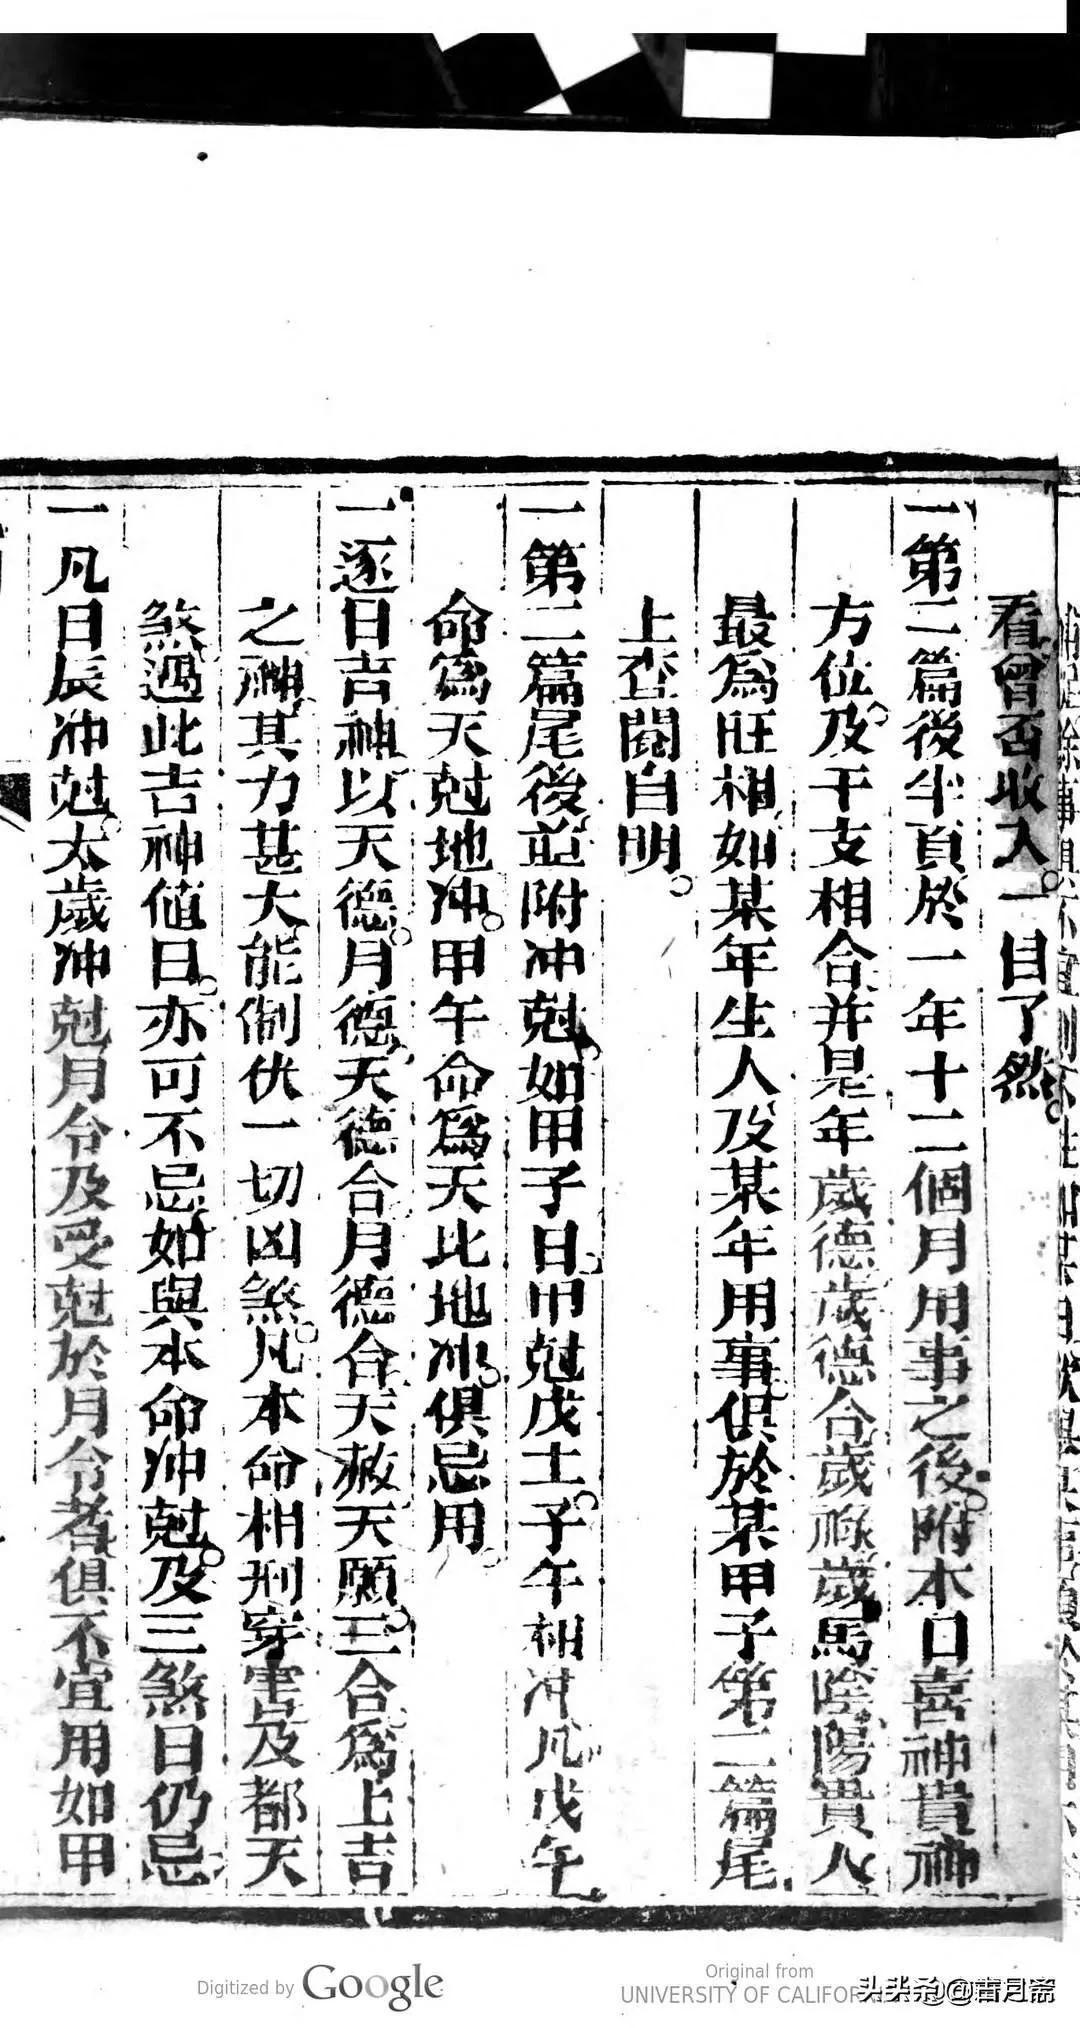 看曾否收入一目了然
一第二篇後半頁於一年十二個月用事之後附本日喜神貴神
方位及干支相合并是年歲德歲德合歲祿歲馬陰陽貴人
最為旺相如某年生人及某年用事俱於某甲子第二篇尾
上查閱自明
一第二篇尾後並附冲尅如甲子日甲尅戊土子午相冲凡戊午
命為天尅地冲甲午命為天比地冲俱忌用
一逐日吉神以天德月德天德合月德合天赦天願三合為上吉
之神其力甚大能制伏一切凶煞凡本命相刑穿害及都天
煞遇此吉神值日亦可不忌如與本命冲尅及三煞日仍忌
一凡日辰冲尅太歲冲尅月令及受尅於月令者俱不宜用如甲
Digitized by Google
Original from
UNIVERSITY OF CALIFOR
头条 @青月斋